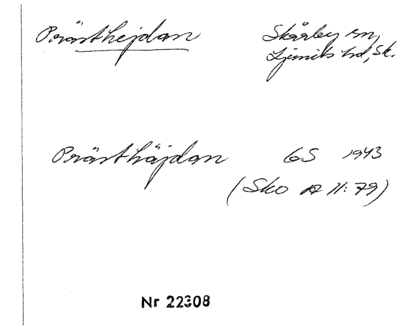 Prästhejdan Skårby sn,
Ljunits hd, Sk.
Prästhäjdan GS 1943
(Sko A 11:79)
Nr 22308